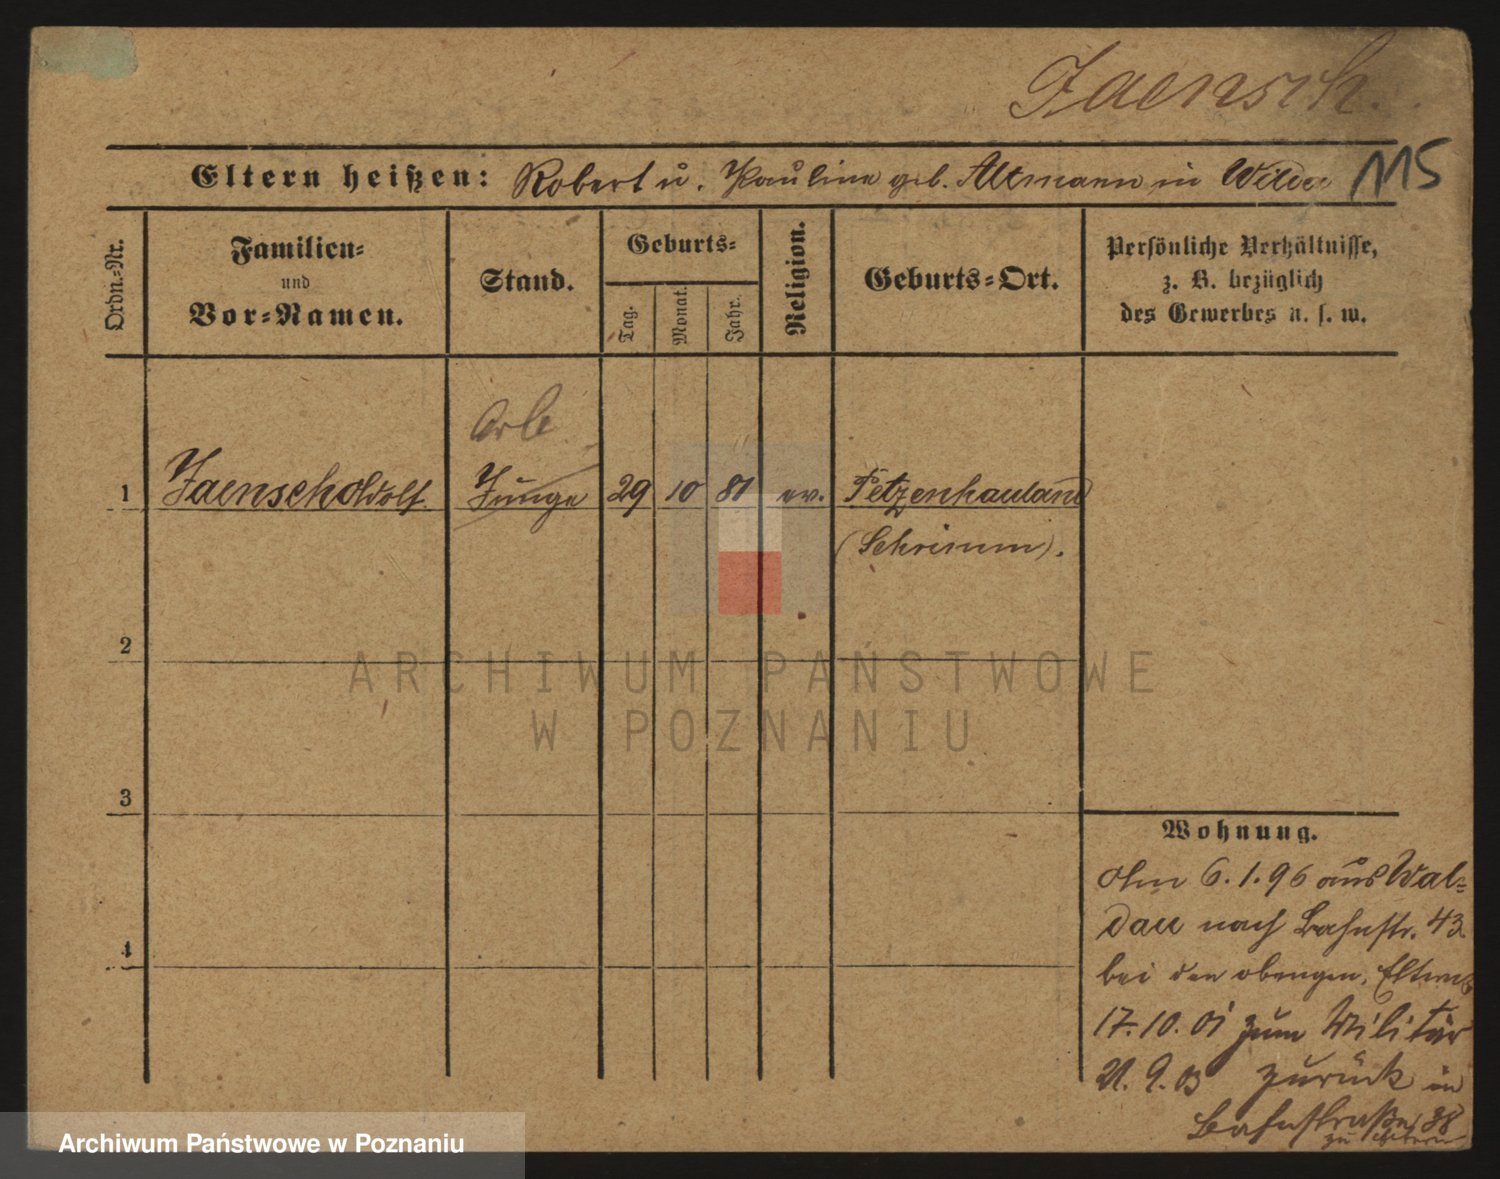 Jaensch.
Eltern heißen: Robert u. Pauline geb. Altmann in Wilda 115
Ordn.-Nr.
Familien-
und
Vor-Namen.
Stand.
Geburts-
Tag.
Monat.
Jahr.
Religion.
Geburts-Ort.
Persönliche Verhältnisse,
z. B. bezüglich
des Gewerbes u. s. w.
Arb
1 Jaensch Adolf Junge 29 10 81 ev. Petzenhauland
(Schrimm).
2
3
4
Wohnung.
6.1.96 aus Wal-
dau nach Bahnstr. 43
bei den obengen. Eltern
17.10.01 zum Militär
21.9.03 zurück in
Bahnstraße 38
zu Eltern
ARCHIWUM PAŃSTWOWE
W POZNANIU
Archiwum Państwowe w Poznaniu